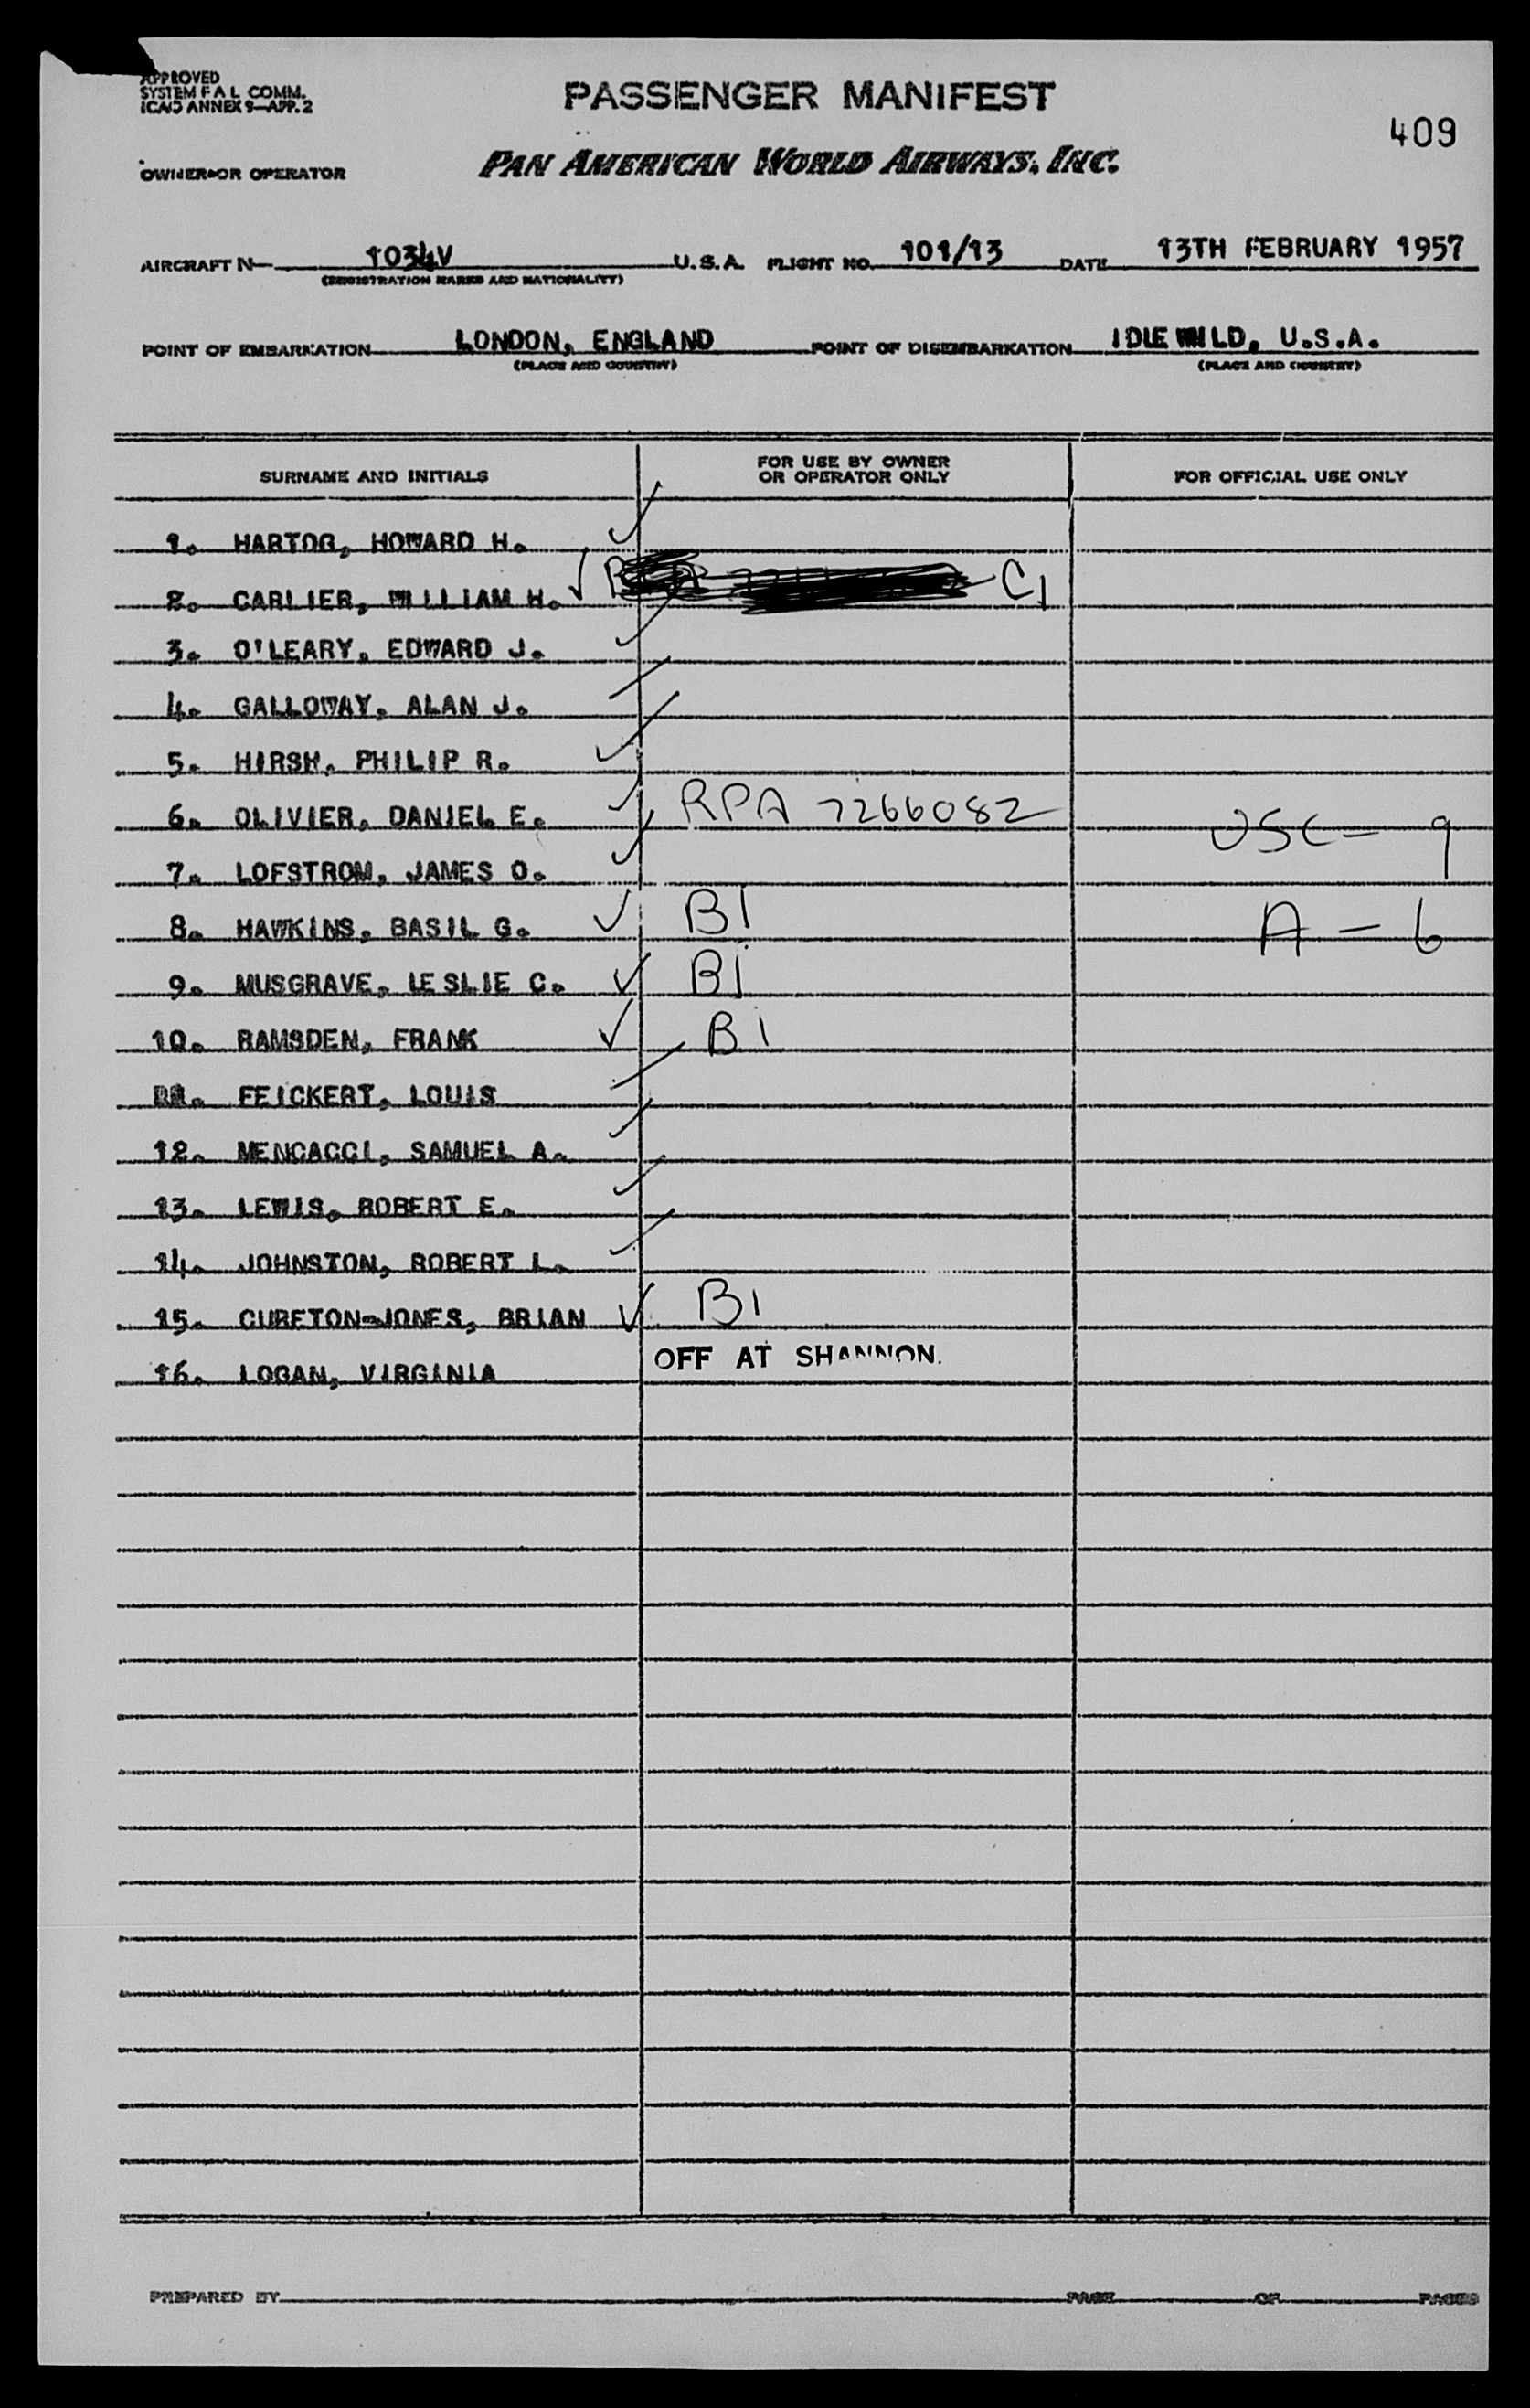 APPROVED
SYSTEM F A L COMM.
ICAO ANNEX 9—APP. 2
PASSENGER MANIFEST
409
OWNER OR OPERATOR
PAN AMERICAN WORLD AIRWAYS, INC.
AIRCRAFT N— 1034V U.S.A. FLIGHT NO. 101/13 DATE 13TH FEBRUARY 1957
(REGISTRATION MARKS AND NATIONALITY)
POINT OF EMBARKATION LONDON, ENGLAND POINT OF DISEMBARKATION IDLEWILD, U.S.A.
(PLACE AND COUNTRY) (PLACE AND COUNTRY)
SURNAME AND INITIALS FOR USE BY OWNER OR OPERATOR ONLY FOR OFFICIAL USE ONLY
1. HARTOG, HOWARD H. ✓
2. CARLIER, WILLIAM H. ✓ C1
3. O'LEARY, EDWARD J. ✓
4. GALLOWAY, ALAN J.
5. HIRSH, PHILIP R. ✓
6. OLIVIER, DANIEL E. ✓ RPA 7266082 USC — 9
7. LOFSTROM, JAMES O. ✓
8. HAWKINS, BASIL G. ✓ B1 A — 6
9. MUSGRAVE, LESLIE C. ✓ B1
10. RAMSDEN, FRANK ✓ B1
11. FEICKERT, LOUIS
12. MENCACCI, SAMUEL A. ✓
13. LEWIS, ROBERT E. ✓
14. JOHNSTON, ROBERT L. ✓
15. CURETON-JONES, BRIAN ✓ B1
16. LOGAN, VIRGINIA OFF AT SHANNON.
PREPARED BY PAGE OF PAGES